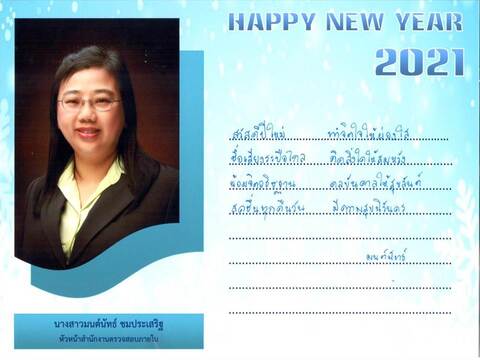 HAPPY NEW YEAR
2021
สวัสดีปีใหม่ ทำจิตใจให้ผ่องใส
ชื่อเสียงระบือไกล คิดสิ่งใดให้สมหวัง
น้อมจิตอธิษฐาน ดลบันดาลให้สุขสันต์
สดชื่นทุกคืนวัน มีความสุขนิรันดร
มนต์นัทธ์
นางสาวมนต์นัทธ์ ชมประเสริฐ
หัวหน้าสำนักงานตรวจสอบภายใน